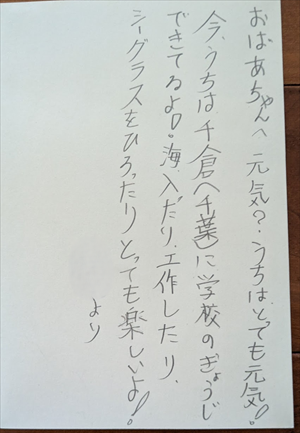 おばあちゃんへ 元気？うちは、とても元気！
今、うちは、千倉（千葉）に学校のぎょうじ
できてるよ！海、入だり、工作したり、
シーグラスをひろったりとっても楽しいよ！
より